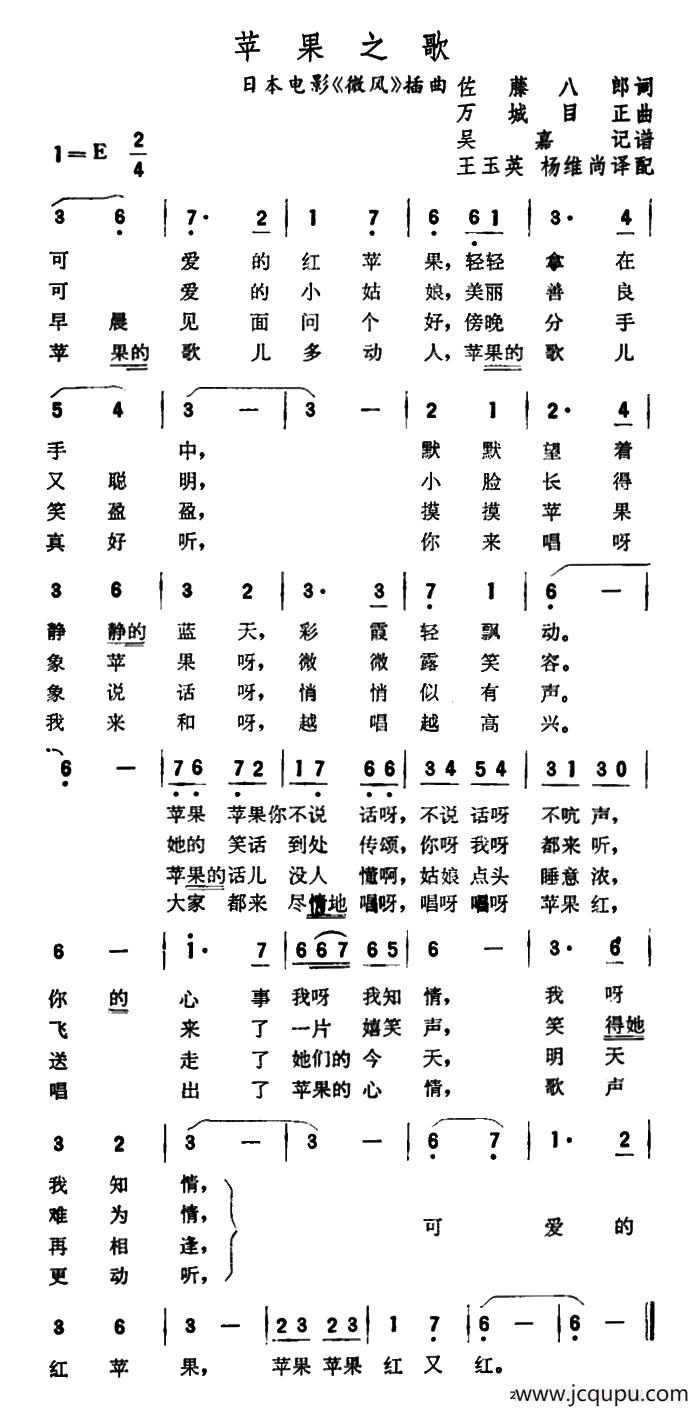 苹果之歌
日本电影《微风》插曲 佐藤八郎词
万城目正曲
吴嘉记谱
1=E 2/4 王玉英 杨维尚译配
3 6 | 7· 2 | 1 7 | 6 61 | 3· 4 |
可 爱的红苹果,轻轻拿在
可 爱的小姑娘,美丽善良
早晨见面问个好,傍晚分手
苹果的歌儿多动人,苹果的歌儿
5 4 | 3 — | 3 — | 2 1 | 2· 4 |
手 中, 默默望着
又聪明, 小脸长得
笑盈盈, 摸摸苹果
真好听, 你来唱呀
3 6 | 3 2 | 3· 3 | 7 1 | 6 — |
静静的蓝天,彩霞轻飘动。
象苹果呀,微微露笑容。
象说话呀,悄悄似有声。
我来和呀,越唱越高兴。
6 — | 76 72 | 17 66 | 34 54 | 31 30 |
苹果 苹果你不说 话呀,不说话呀 不吭声,
她的 笑话 到处 传颂,你呀我呀 都来听,
苹果的话儿 没人 懂啊,姑娘点头 睡意浓,
大家 都来 尽情地 唱呀,唱呀唱呀 苹果红,
6 — | 1· 7 | 667 65 | 6 — | 3· 6 |
你的心事我呀 我知情, 我呀
飞来了一片 嬉笑声, 笑得她
送走了她们的今天, 明天
唱出了苹果的心情, 歌声
3 2 | 3 — | 3 — | 6 7 | 1· 2 |
我知情,
难为情,
可 爱的
再相逢,
更动听,
3 6 | 3 — | 23 23 | 1 7 | 6 — | 6 — ‖
红苹果, 苹果 苹果 红又红。
2www.jcqupu.com